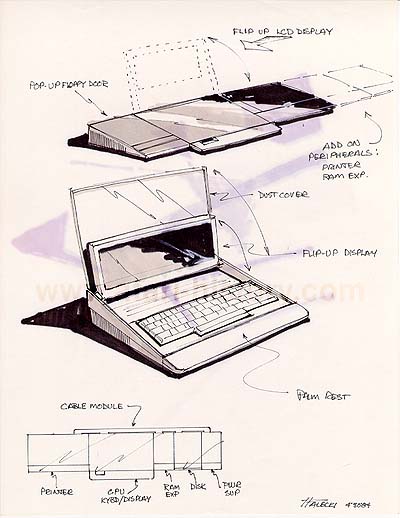 FLIP UP LCD DISPLAY
POP-UP FLOPPY DOOR
ADD ON
PERIPHERALS:
PRINTER
RAM EXP.
DUST COVER
FLIP-UP DISPLAY
PALM REST
CABLE MODULE
PRINTER
CPU
KYBD/DISPLAY
RAM
EXP
DISK
PWR
SUP
HALECKI